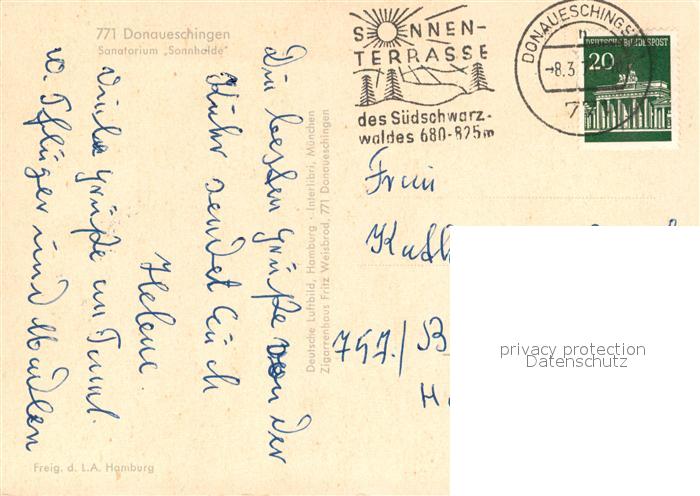 771 Donaueschingen
Sanatorium „Sonnhalde"
SONNEN-
TERRASSE
des Südschwarz-
waldes 680-825m
DONAUESCHINGEN
-8.3.
DEUTSCHE BUNDESPOST
20
Die besten Grüße von der
Kuhr sendet Euch
Helene.
viele Grüße an Fam.
W. Pflüger und
Deutsche Luftbild, Hamburg · Interlibri, München
Zigarrenhaus Fritz Weisbrod, 771 Donaueschingen
Frau
Kath
757./B
H
privacy protection
Datenschutz
Freig. d. L.A. Hamburg